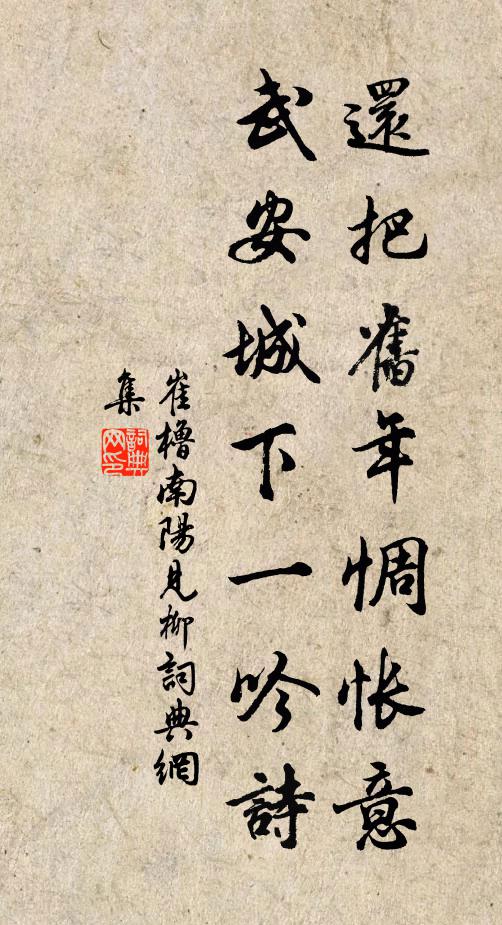 還把舊年惆悵意
武安城下一吟詩
崔櫓南陽見柳詞典網
集
詞典
网印